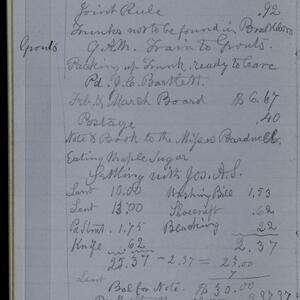 Joint Rule .92
Trunks not to be found in Brattleboro
Grouts 9 A.M. Train to Grouts.
Packing up Trunk, ready to leave
Pd. J. C. Bartlett.
Feb & March Board $6.67
Postage .40
Note & Book to the Misses Bardwell.
Eating Maple Sugar
Settling with Jos. A. S.
Lent 10.00 Washing Bill 1.53
Lent 13.00 Shoecraft .62
1.75 Blacking .22
Knife .62 2.37
25.37 - 2.37 = 23.00
Lent 7
Bal for Note. $30.00